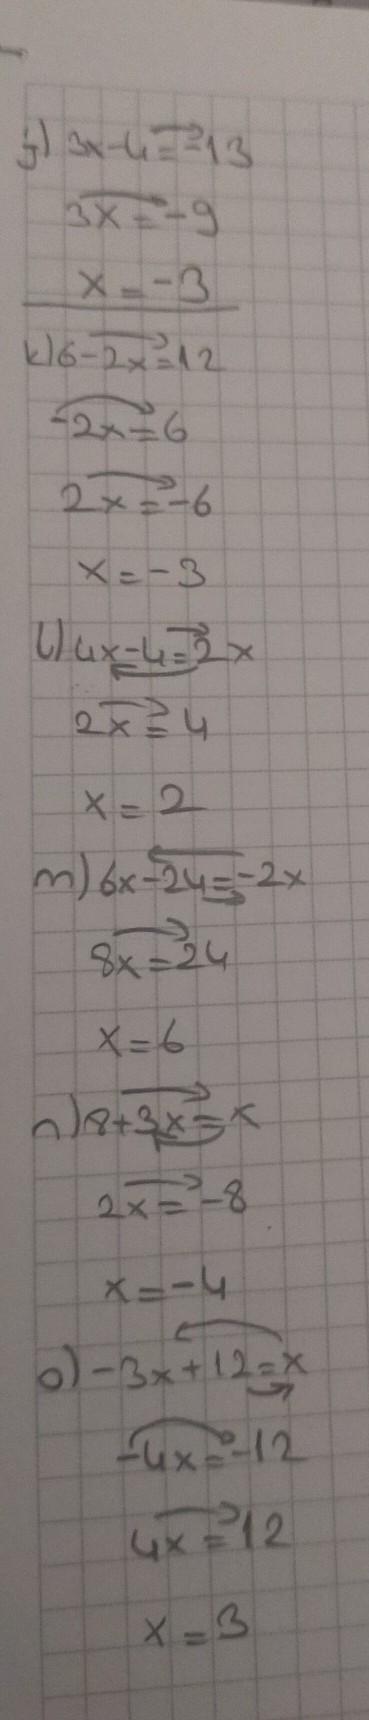 j) 3x-4=-13
3x=-9
x=-3
k) 6-2x=12
-2x=6
2x=-6
x=-3
l) 4x-4=2x
2x=4
x=2
m) 6x-24=-2x
8x=24
x=6
n) 8+3x=x
2x=-8
x=-4
o) -3x+12=x
-4x=-12
4x=12
x=3